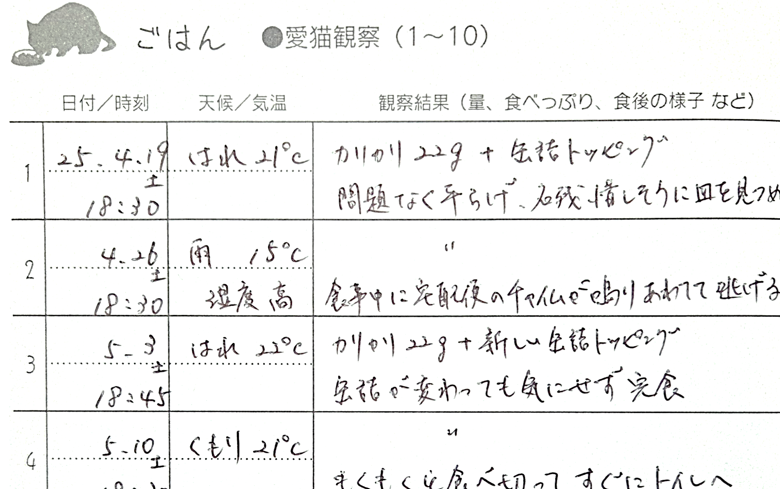 ごはん ●愛猫観察（1～10）
日付／時刻 天候／気温 観察結果（量、食べっぷり、食後の様子 など）
1 25.4.19 土 はれ 21℃ カリカリ 22g + 缶詰トッピング
18:30 問題なく平らげ、名残惜しそうに皿を見つめ
2 4.26 土 雨 15℃ 〃
18:30 湿度高 食事中に宅配便のチャイムが鳴りあわてて逃げる
3 5.3 土 はれ 22℃ カリカリ 22g + 新しい缶詰トッピング
18:45 缶詰が変わっても気にせず完食
4 5.10 土 くもり 21℃ 〃
食べ切って すぐにトイレへ